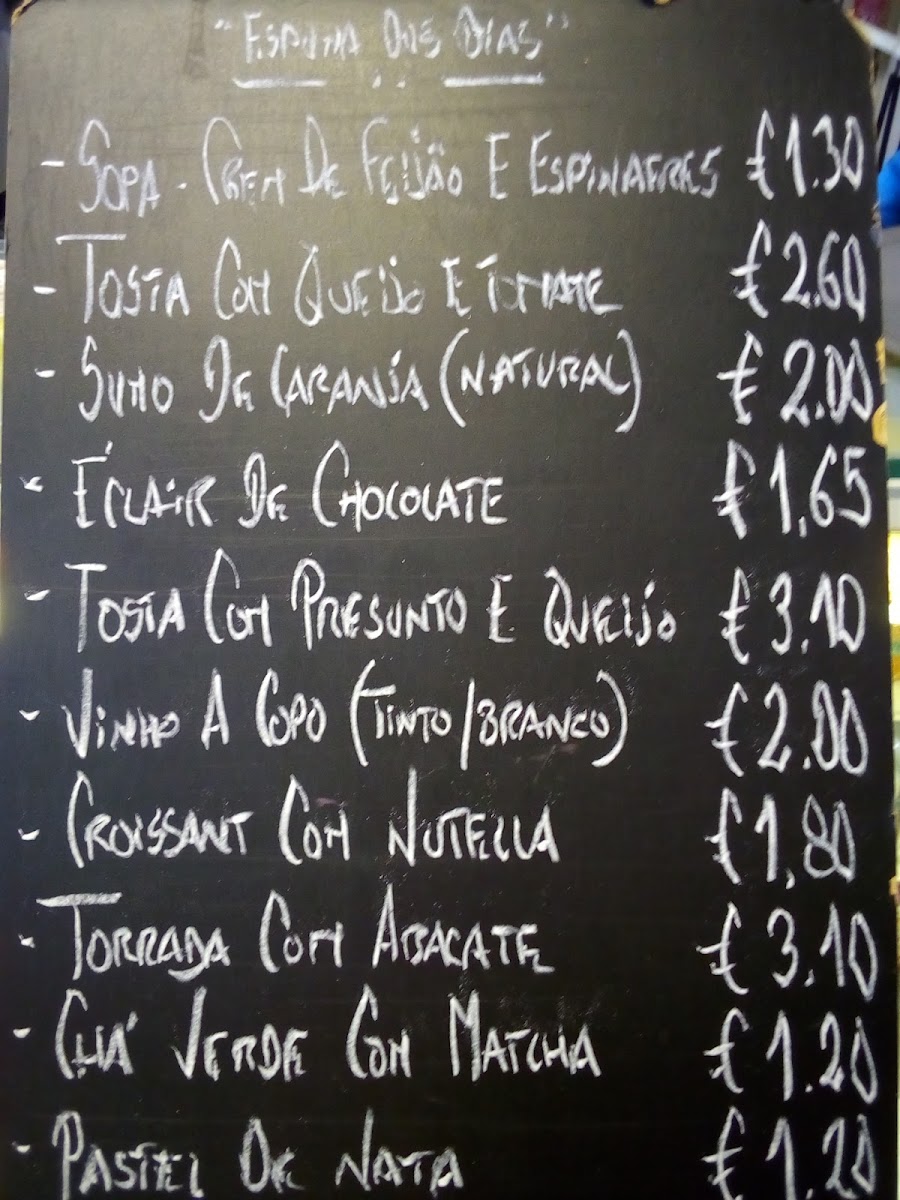 "Espuma Dos Dias"
- Sopa - Crem De Feijão E Espinafres €1.30
- Tosta Com Queijo E Tomate €2.60
- Sumo De Laranja (Natural) €2.00
- Éclair De Chocolate €1,65
- Tosta Com Presunto E Queijo €3.10
- Vinho A Copo (Tinto/Branco) €2.00
- Croissant Com Nutella €1,80
- Torrada Com Abacate €3.10
- Chá Verde Com Matcha €1.20
- Pastel De Nata €1.20